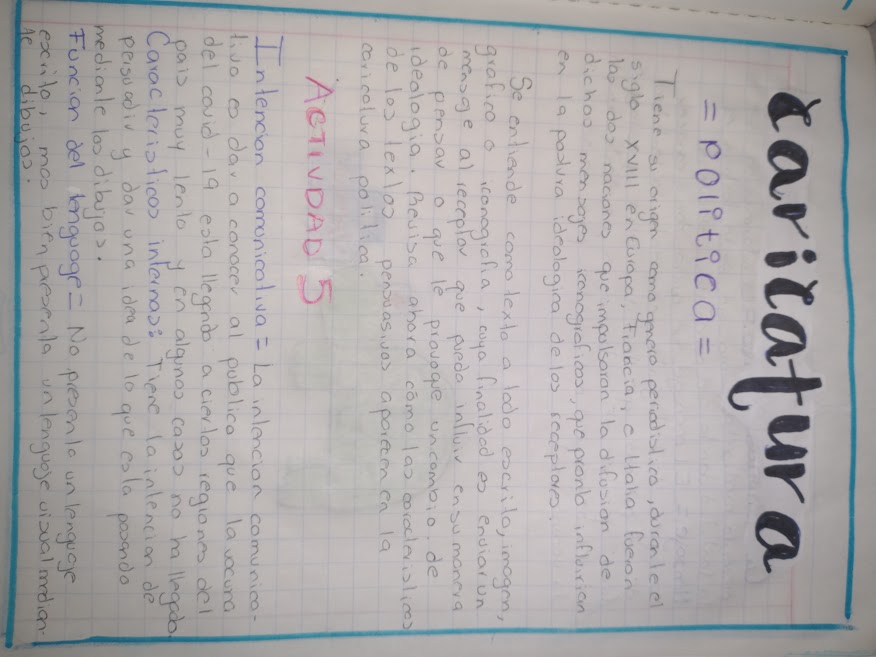 Caricatura
= política =
Tiene su origen como genero periodistico, durante el
siglo XVIII en Europa, Francia, e Italia fueron
las dos naciones que impulsaron la difusion de
dichos mensajes iconograficos, que pronto influirian
en la postura ideologica de los receptores.
Se entiende como texto a todo escrito, imagen,
grafico o iconografia, cuya finalidad es enviar un
mensaje al receptor que pueda influir en su manera
de pensar o que le provoque un cambio de
ideologia. Revisa ahora cómo las caracteristicas
de los textos persuasivos aparecen en la
caricatura politica.
ACTIVDAD 5
Intencion comunicativa = La intencion comunica-
tiva es dar a conocer al publico que la vacuna
del covid-19 esta llegando a ciertas regiones del
pais muy lento y en algunos casos no ha llegado.
Caracteristicas internas: Tiene la intencion de
persuadir y dar una idea de lo que esta pasando
mediante los dibujos.
Funcion del lenguage = No presenta un lenguage
escrito, mas bien presenta un lenguage visual median-
te dibujos.